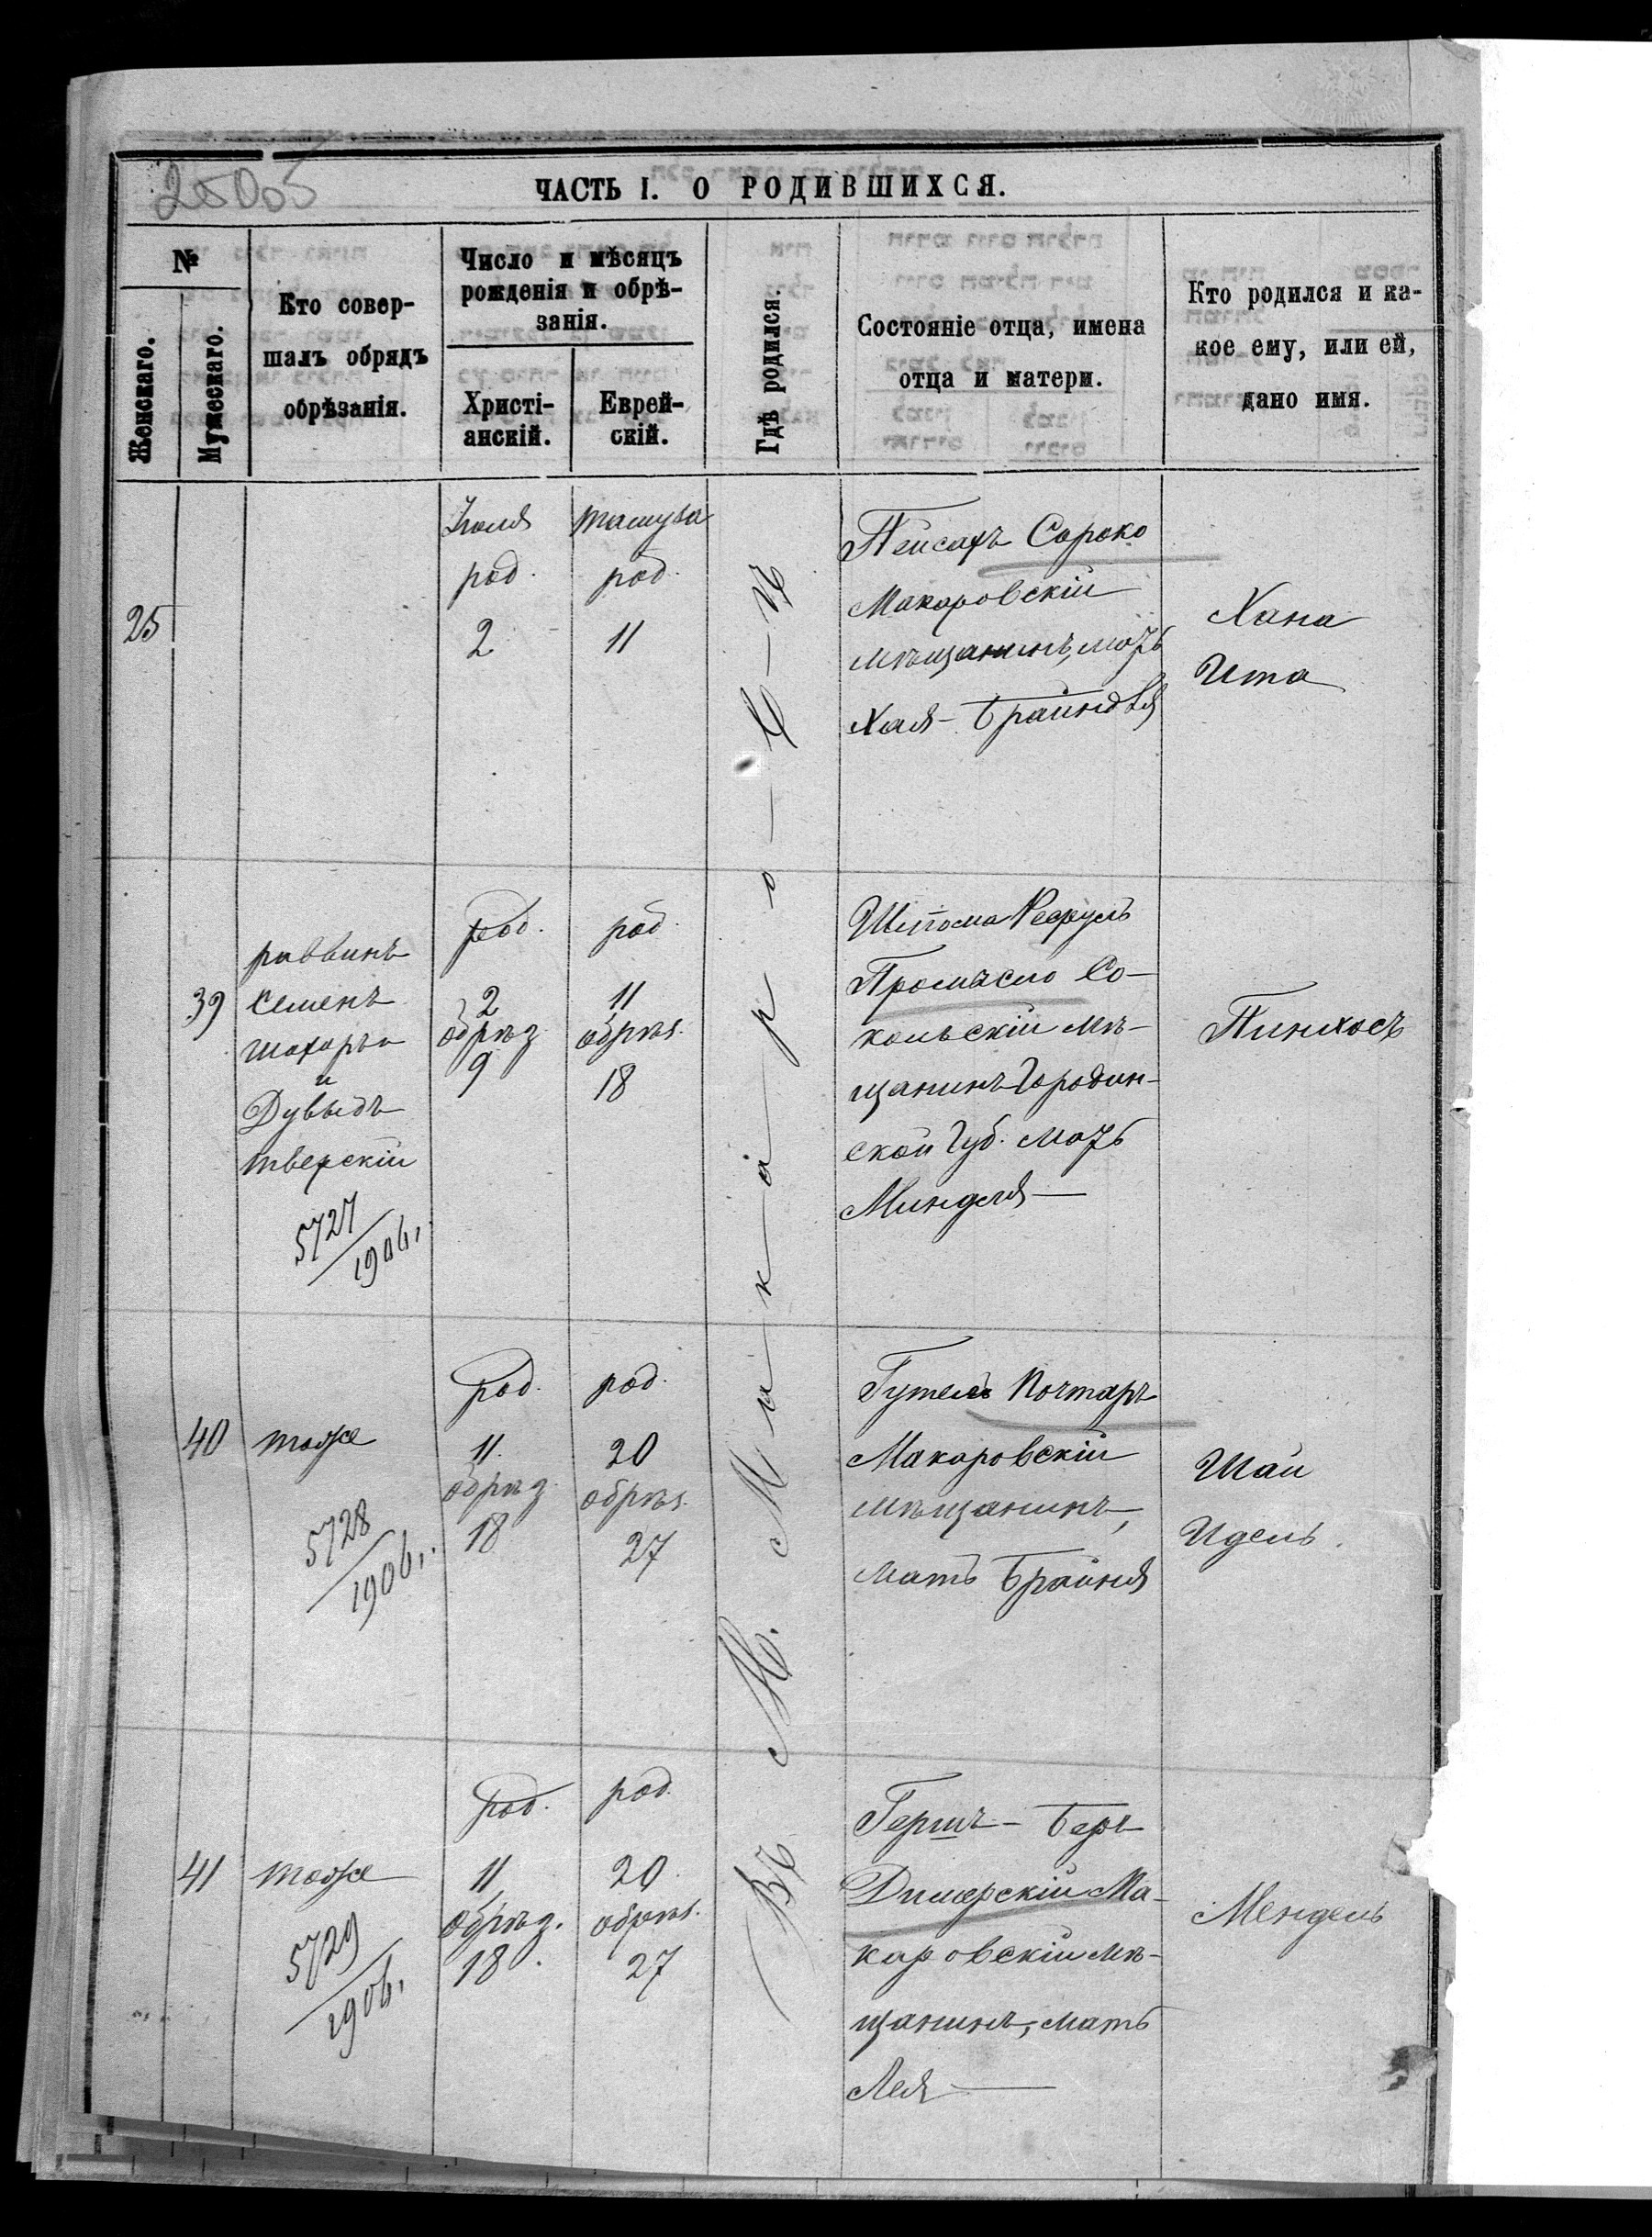 25005
ЧАСТЬ I. О РОДИВШИХСЯ.
№
Женскаго.
Мужескаго.
Кто совер-
шалъ обрядъ
обрѣзанія.
Число и мѣсяцъ
рожденія и обрѣ-
занія.
Христі-
анскій.
Еврей-
скій.
Гдѣ родился.
Состояніе отца, имена
отца и матери.
Кто родился и ка-
кое ему, или ей,
дано имя.
Въ М. Макарове
25
Іюля
род.
2
тамуза
род.
11
Пейсахъ Сороко
Макаровскій
мѣщанинъ, мать
Хая-Брайндля
Хана
Ита
39
раввинъ
Семенъ
и
Дувидъ
тверскій
5727
1906.
род.
2
обрѣз.
9
род.
11
обрѣз.
18
Промысло Со-
кольскій мѣ-
щанинъ Гродин-
ской Губ. мать
Миндля
Пинхосъ
40
тоже
5728
1906.
род.
11
обрѣз.
18
род.
20
обрѣз.
27
Гутель Почтаръ
Макаровскій
мѣщанинъ,
мать Брайня
Шай
Идель
41
тоже
5729
1906.
род.
11
обрѣз.
18
род.
20
обрѣз.
27
Гершъ-Беръ
Димерскій Ма-
каровскій мѣ-
щанинъ, мать
Лея
Мендель